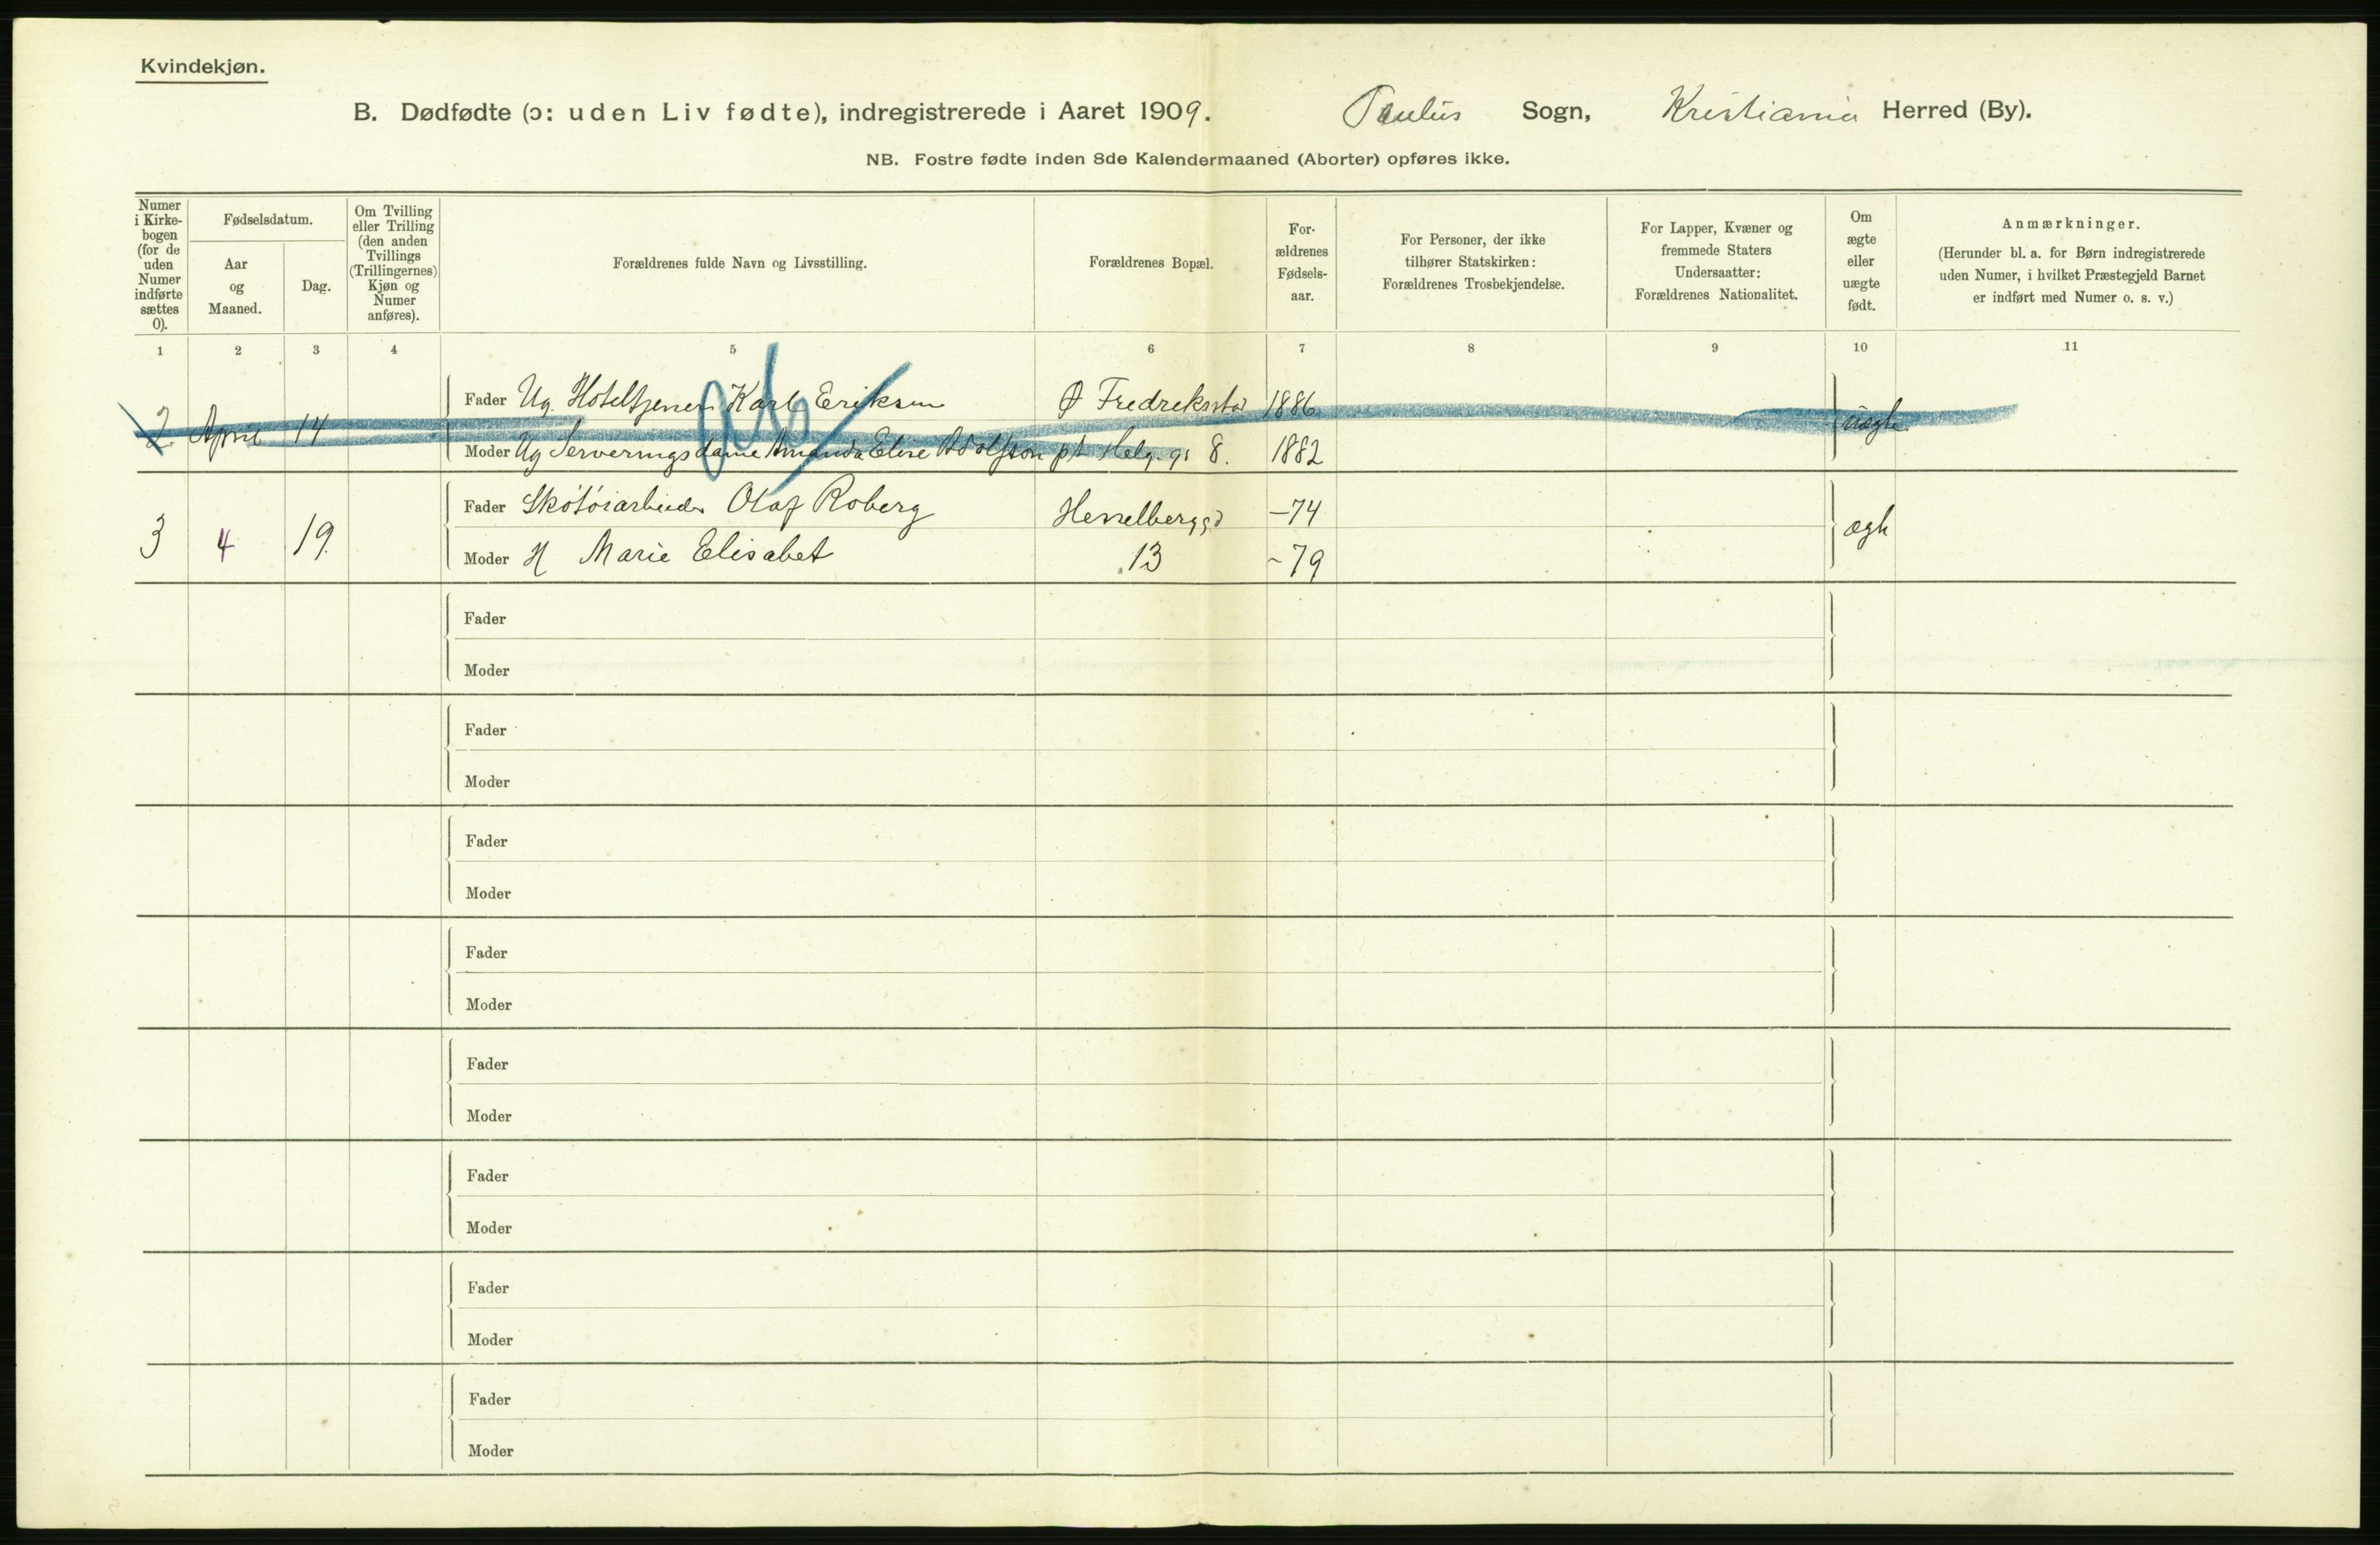 Kvindekjøn.
B. Dødfødte (ɔ: uden Liv fødte), indregistrerede i Aaret 1909. Paulus Sogn, Kristiania Herred (By).
NB. Fostre fødte inden 8de Kalendermaaned (Aborter) opføres ikke.
Numer i Kirke-bogen (for de uden Numer indførte sættes 0).
Fødselsdatum.
Aar og Maaned.
Dag.
Om Tvilling eller Trilling (den anden Tvillings (Trillingernes) Kjøn og Numer anføres).
Forældrenes fulde Navn og Livsstilling.
Forældrenes Bopæl.
For-ældrenes Fødsels-aar.
For Personer, der ikke tilhører Statskirken: Forældrenes Trosbekjendelse.
For Lapper, Kvæner og fremmede Staters Undersaatter: Forældrenes Nationalitet.
Om ægte eller uægte født.
Anmærkninger.
(Herunder bl. a. for Børn indregistrerede uden Numer, i hvilket Præstegjeld Barnet er indført med Numer o. s. v.)
1 2 3 4 5 6 7 8 9 10 11
Fader Ug. Hoteltjener Karl Eriksen Ø Fredrikstad 1886
2. April 14 uægte
Moder Ug Serveringsdame Amanda Elise Adolfson pt Helg. gt 8. 1882
Fader Skotøiarbeider Olaf Roberg Hesselberggd -74
3 4 19. ægte
Moder H Marie Elisabet 13 -79
Fader
Moder
Fader
Moder
Fader
Moder
Fader
Moder
Fader
Moder
Fader
Moder
Fader
Moder
Fader
Moder